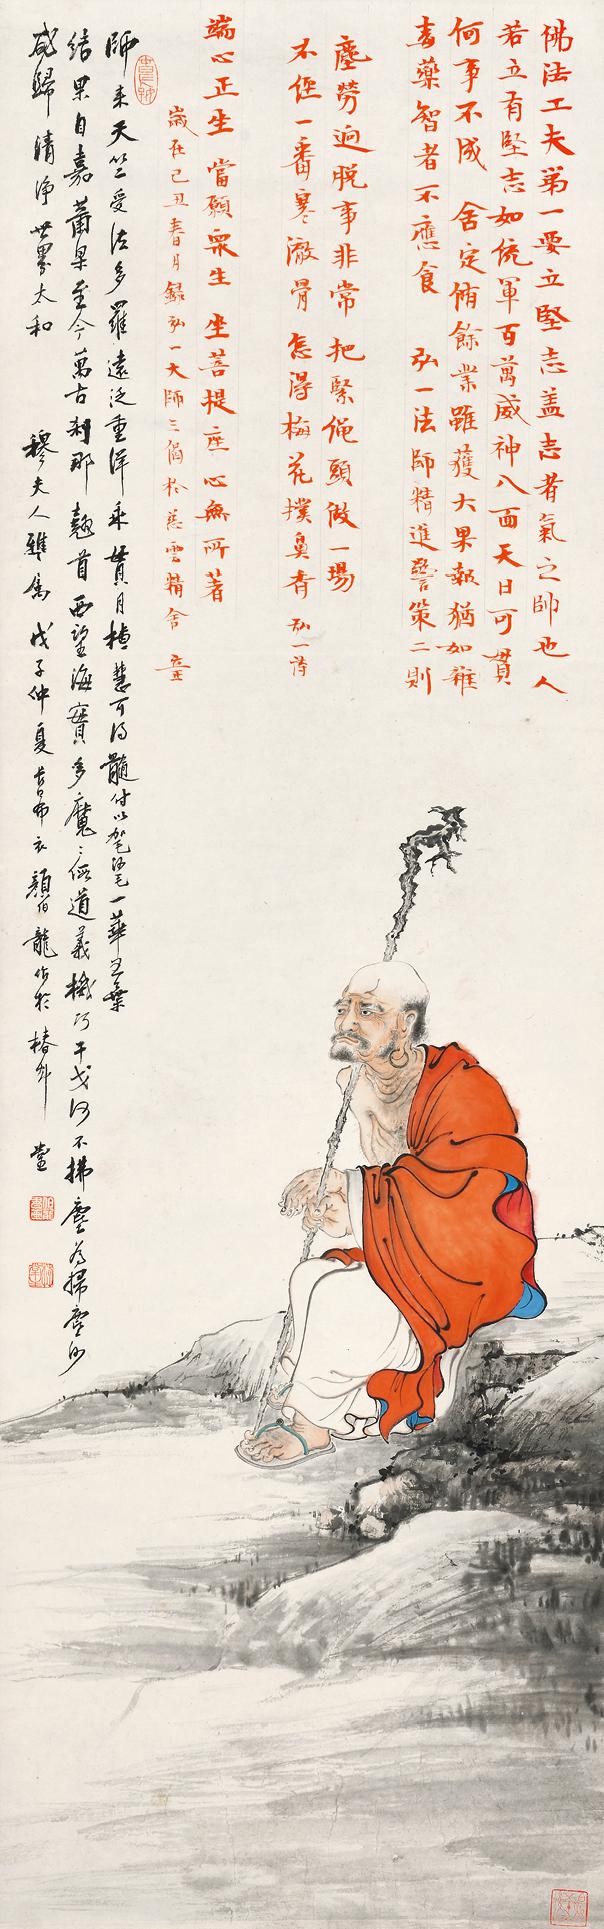 佛法工夫第一要立堅志盖志者氣之帥也人
若立有堅志如統軍百萬威神八面天日可貫
何事不成 舍定脩餘業雖獲大果報猶如雜
毒藥智者不應食 弘一法師精進警策二則
塵勞逈脫事非常把緊繩頭做一場
不經一番寒澈骨怎得梅花撲鼻香 弘一詩
端心正坐 當願衆生 坐菩提座心無所著
歲在己丑春月錄弘一大師三偈於慈雲精舍
師來天竺受法多羅遠泛重洋乘貫月槎慧可得髓付以袈裟一華五葉
結果自嘉蕭梁至今萬古剎那翹首西望海寶多魔魔假道義機巧干戈何不拂塵為掃塵沙
咸歸清净世界太和
穆夫人雅屬 戊子仲夏長白布衣顏伯龍作於椿艸堂